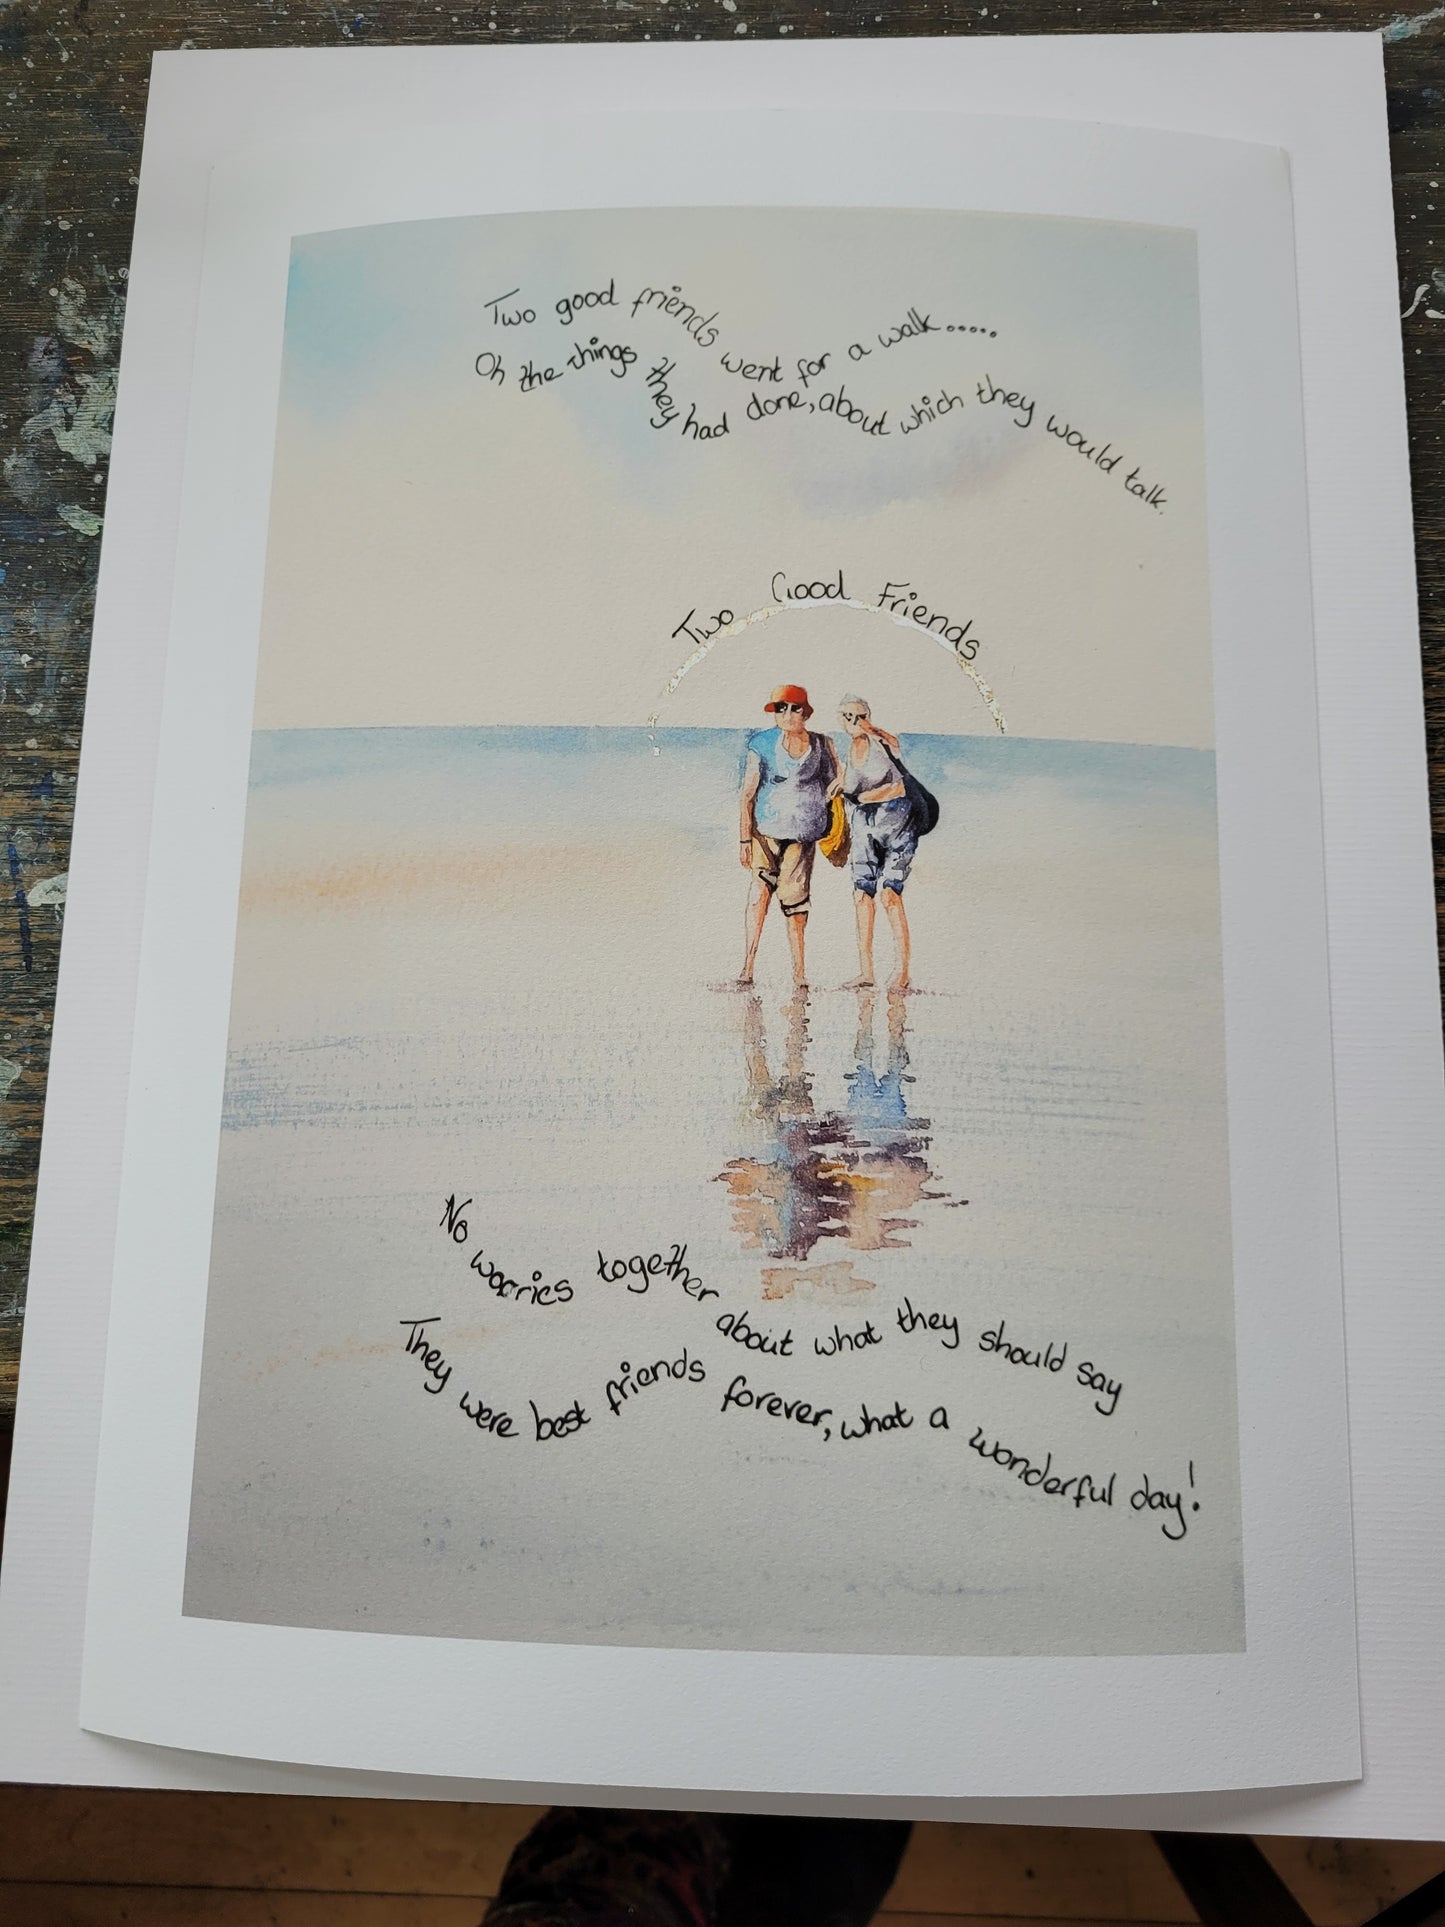 Two good friends went for a walk.....
Oh the things they had done, about which they would talk.
Two Good Friends
No worries together about what they should say
They were best friends forever, what a wonderful day!